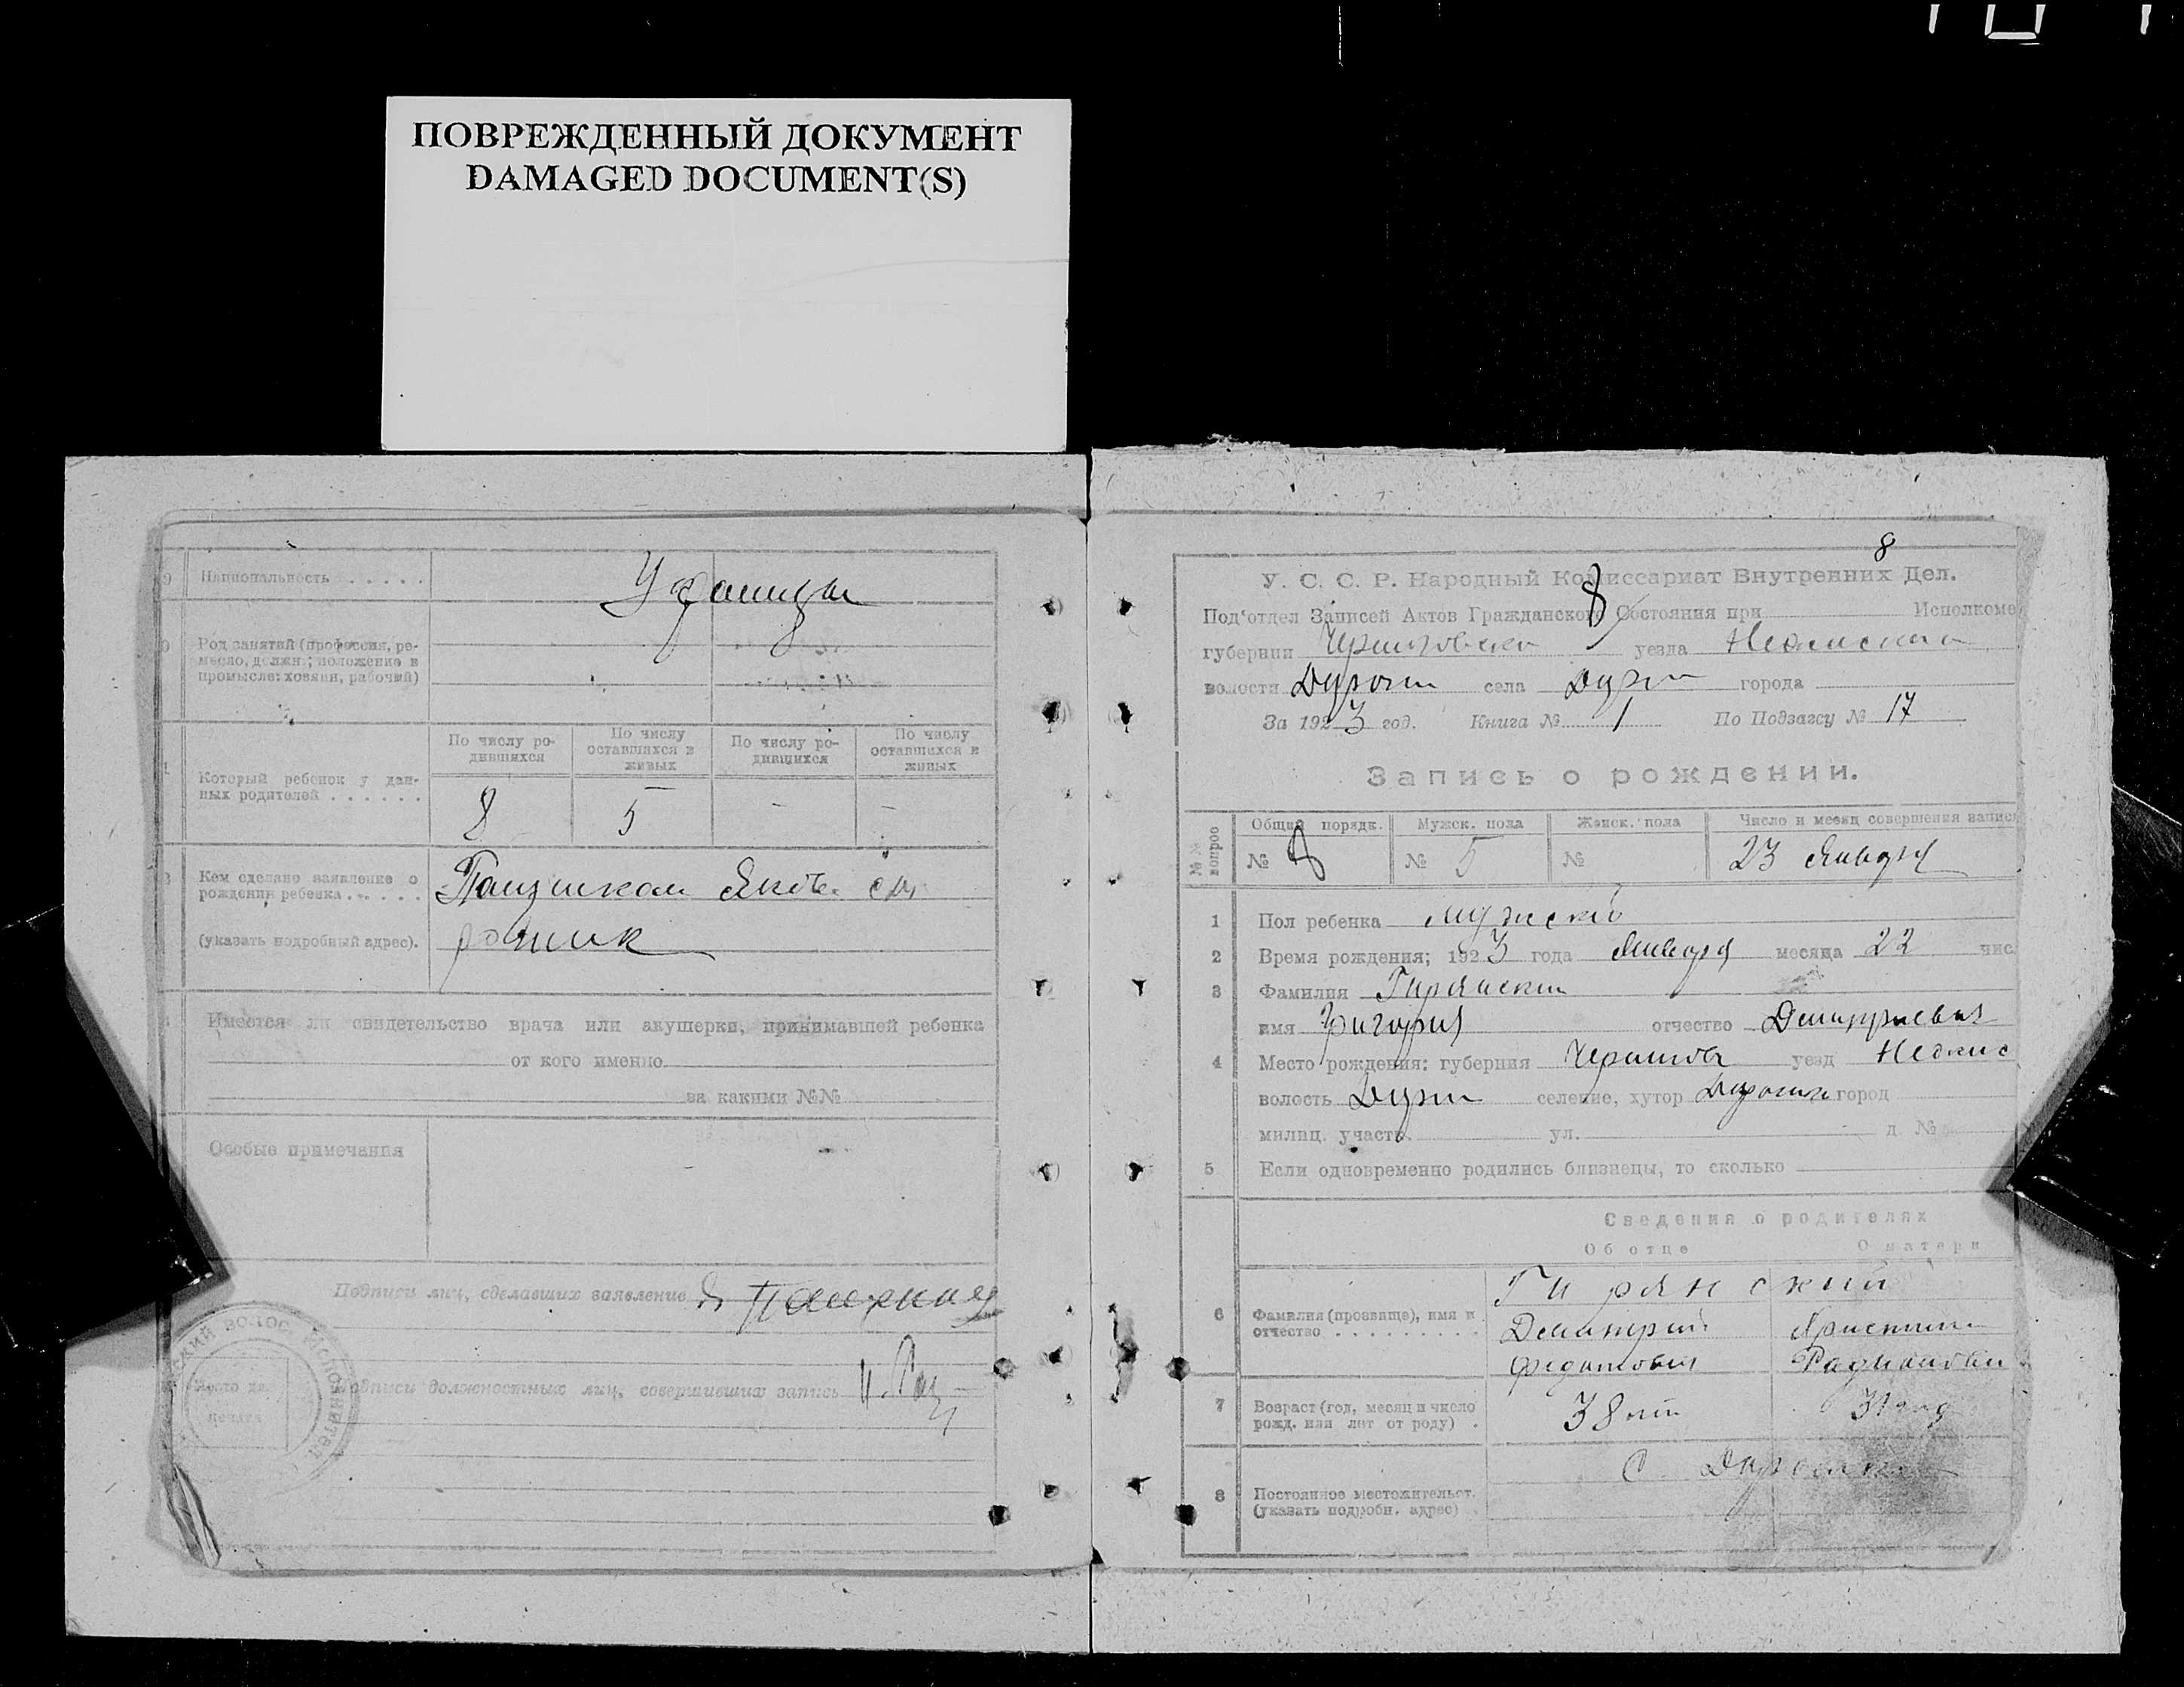 ПОВРЕЖДЕННЫЙ ДОКУМЕНТ
DAMAGED DOCUMENT(S)
9 Национальность . . . . . Украинцы
Род занятий (профессия, ре-
месло, должн.; положение в
промысле: хозяин, рабочий)
Который ребенок у дан-
ных родителей . . . . . .
По числу ро-
дившихся
По числу
оставшихся в
живых
По числу ро-
дившихся
По числу
оставшихся в
живых
8 5 - -
Кем сделано заявление о
рождении ребенка . . . . .
(указать подробный адрес).
Имеется ли свидетельство врача или акушерки, принимавшей ребенка
от кого именно
за какими №№
Особые примечания
Подписи лиц, сделавших заявление
Подписи должностных лиц, совершивших запись
Место для
печати
8
У. С. С. Р. Народный Комиссариат Внутренних Дел.
8
Под'отдел Записей Актов Гражданского Состояния при Исполкоме
губернии уезда
волости села города
За 1923 год. Книга № 1 По Подзагсу № 17
Запись о рождении.
№№ вопрос
Общий порядк. Мужск. пола Женск. пола Число и месяц совершения записи
№ 8 № 5 № 23 Января
1 Пол ребенка мужской
2 Время рождения; 1923 года Января месяца 22 чис
3 Фамилия Гирянский
имя Григорий отчество Дмитриевич
4 Место рождения: губерния Чернигов уезд
волость селение, хутор город
милиц. участ. ул. д. №
5 Если одновременно родились близнецы, то сколько
Сведения о родителях
Об отце О матери
6 Фамилия (прозвище), имя и
отчество . . . . . . . . . .
Гирянский
Дмитрий
Федотович
7 Возраст (год, месяц и число
рожд. или лет от роду) .
38 лет 31 год
8 Постоянное местожительст.
(указать подробн. адрес) .
С.